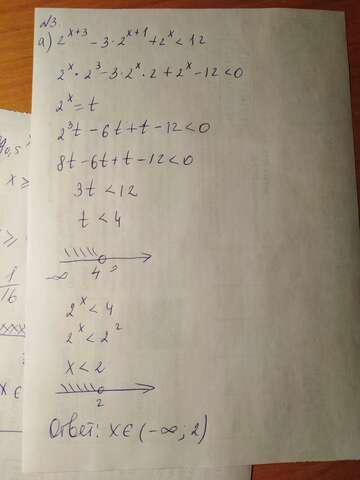 №3.
а) 2^{x+3} - 3·2^{x+1} + 2^x < 12
2^x · 2^3 - 3·2^x·2 + 2^x - 12 < 0
2^x = t
2^3t - 6t + t - 12 < 0
8t - 6t + t - 12 < 0
3t < 12
t < 4
-∞ 4
2^x < 4
2^x < 2^2
x < 2
2
Ответ: x ∈ (-∞; 2)
x ≥
≥
1
16
x ∈